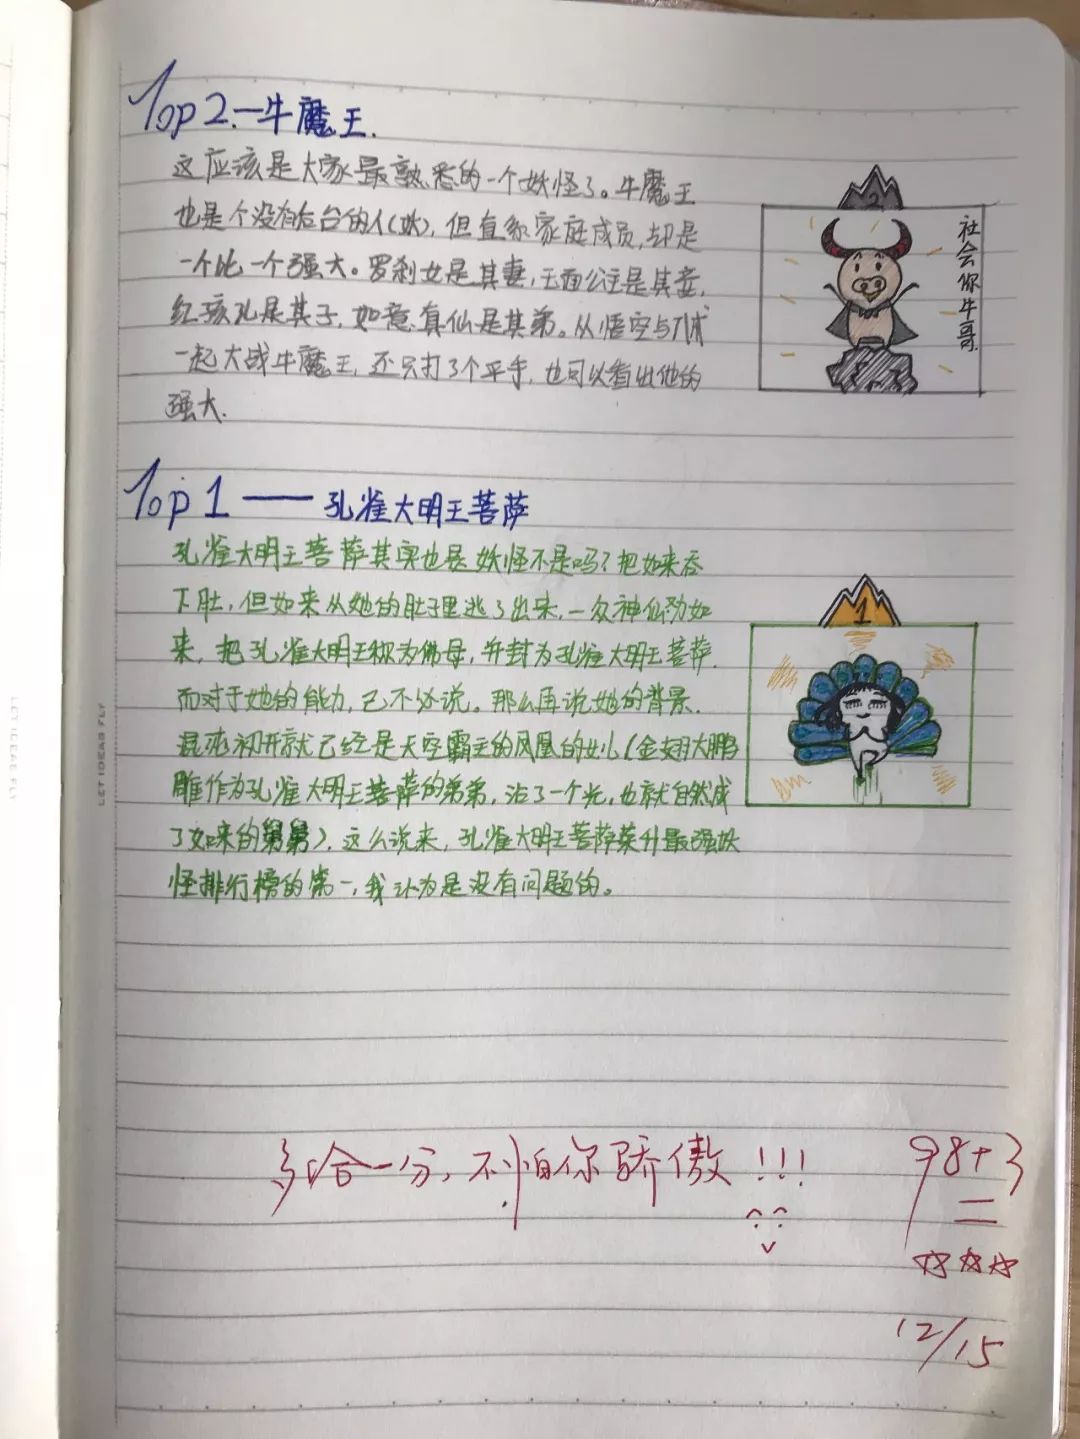 Top 2.一牛魔王.
这应该是大家最熟悉的一个妖怪了。牛魔王
也是个没有后台的人(妖),但直系家庭成员,却是
一个比一个强大。罗刹女是其妻,玉面公主是其妾,
红孩儿是其子,如意真仙是其弟。从悟空与八戒
一起大战牛魔王,还只打了个平手,也可以看出他的
强大.
2
社会你牛哥.
Top 1 —— 孔雀大明王菩萨
孔雀大明王菩萨其实也是妖怪不是吗?把如来吞
下肚,但如来从她的肚子里逃了出来,一众神仙劝如
来,把孔雀大明王称为佛母,并封为孔雀大明王菩萨.
而对于她的能力,已不必说。那么再说她的背景.
混沌初开就已经是天空霸主的凤凰的女儿(金翅大鹏
雕作为孔雀大明王菩萨的弟弟,沾了一个光,也就自然成
了如来的舅舅),这么说来,孔雀大明王菩萨荣升最强妖
怪排行榜的第一,我认为是没有问题的。
1
多给一分,不怕你骄傲!!!
98+3
12/15
LET IDEAS FLY
LET IDEAS FLY